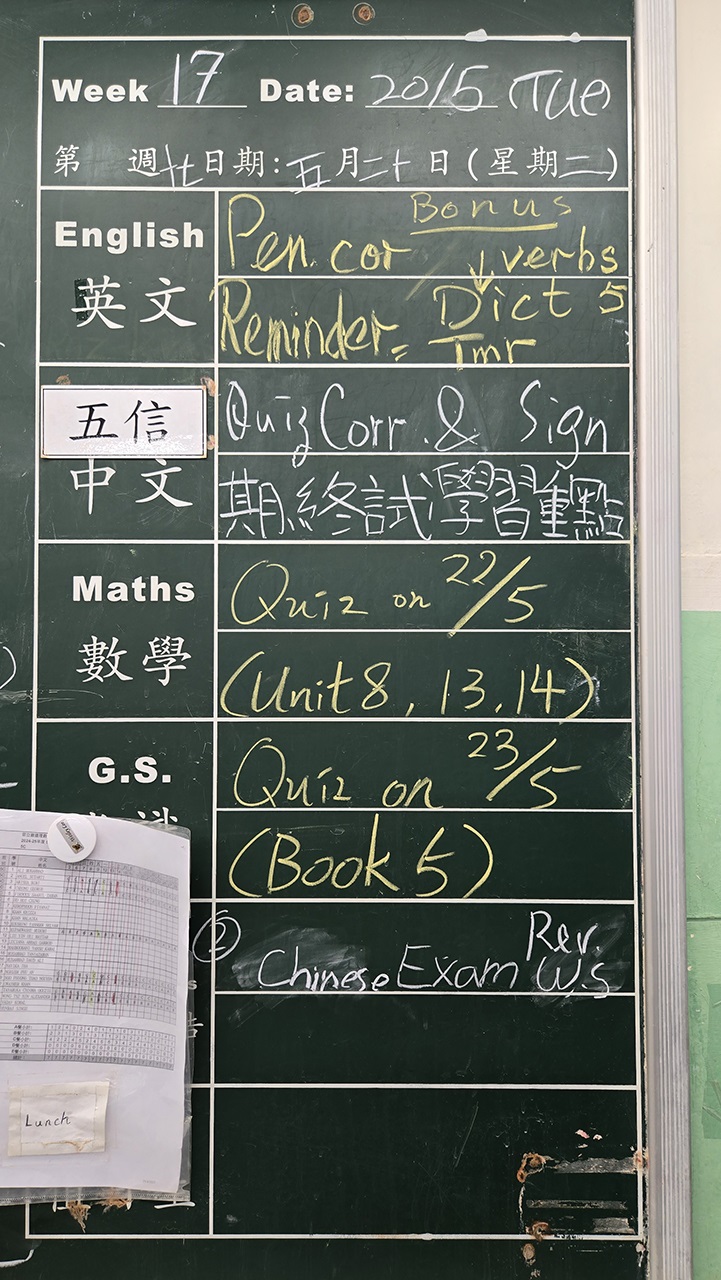 Week 17 Date: 20/5 (Tue)
第 週廿日期:五月二十日(星期二)
English
英文
Bonus
Pen. cor ↓ verbs
Reminder= Dict 5
Tmr
五信
中文
Quiz Corr. & Sign
期終試學習重點
Maths
數學
Quiz on 22/5
(Unit 8, 13, 14)
G.S.
Quiz on 23/5
(Book 5)
② Chinese Exam Rev. W.S
Lunch